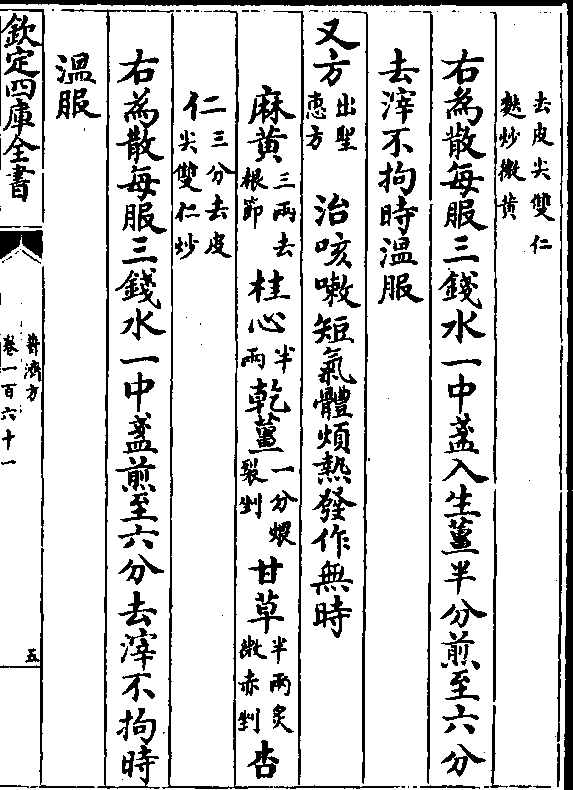 去皮尖雙仁
麩炒微黄
右為散每服三錢水一中盞入生薑半分煎至六分
去滓不拘時温服
又方出聖惠方 治咳嗽短氣體煩熱發作無時
麻黄三兩去根節 桂心半兩 乾薑一分煨裂剉 甘草半兩炙微赤剉 杏
仁三分去皮尖雙仁炒
右為散每服三錢水一中盞煎至六分去滓不拘時
温服
欽定四庫全書
普濟方
卷一百六十一
五